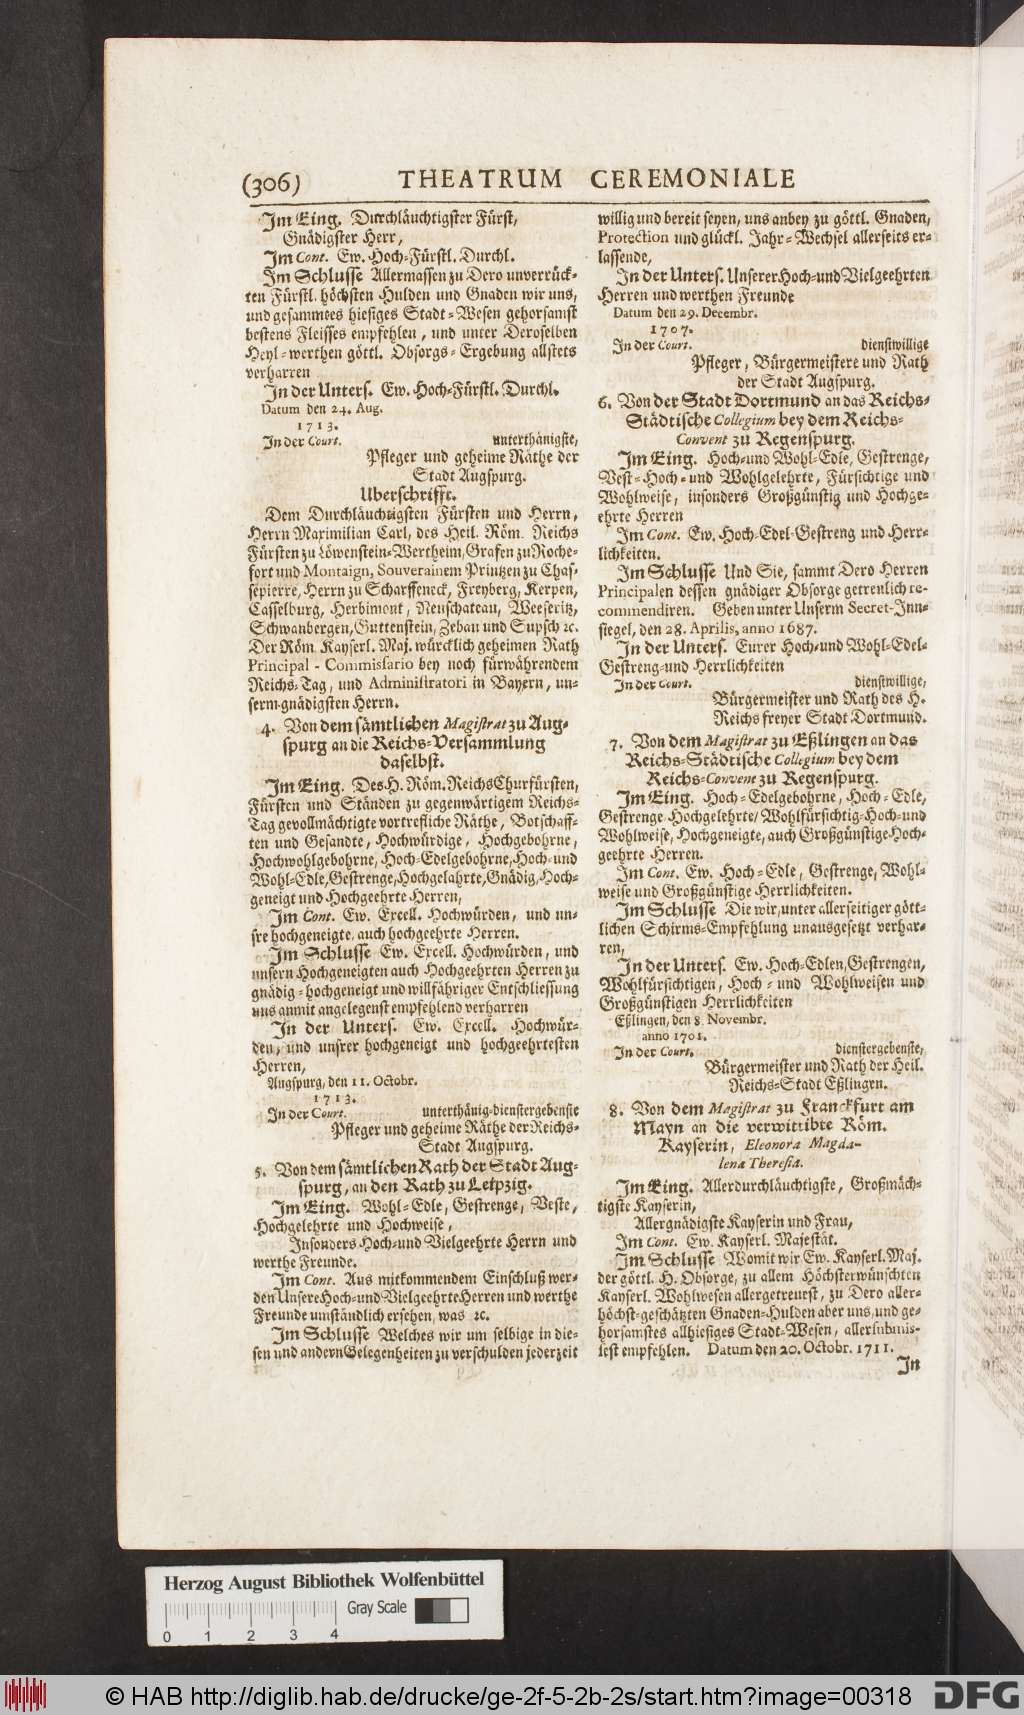 (306) THEATRUM CEREMONIALE
Im Eing. Durchläuchtigster Fürst,
Gnädigster Herr,
Im Cont. Ew. Hoch-Fürstl. Durchl.
Im Schlusse Allermassen zu Dero unverrück-
ten Fürstl. höchsten Hulden und Gnaden wir uns,
und gesammtes hiesiges Stadt-Wesen gehorsamst
bestens Fleisses empfehlen, und unter Deroselben
Heyl-werthen göttl. Obsorgs-Ergebung allstets
verharren
In der Unters. Ew. Hoch-Fürstl. Durchl.
Datum den 24. Aug.
1713.
In der Court. unterthänigste,
Pfleger und geheime Räthe der
Stadt Augspurg.
Uberschrifft.
Dem Durchläuchtigsten Fürsten und Herrn,
Herrn Maximilian Carl, des Heil. Röm. Reichs
Fürsten zu Löwenstein-Wertheim, Grafen zu Roche-
fort und Montaign, Souverainem Printzen zu Chas-
sepierre, Herrn zu Scharffeneck, Freyberg, Kerpen,
Casselburg, Herbimont, Neuschateau, Weeseritz,
Schwanbergen, Guttenstein, Zebau und Supsch ꝛc.
Der Röm. Kayserl. Maj. würcklich geheimen Rath
Principal-Commissario bey noch fürwährendem
Reichs-Tag, und Administratori in Bayern, un-
serm gnädigsten Herrn.
4. Von dem sämtlichen Magistrat zu Aug-
spurg an die Reichs-Versammlung
daselbst.
Im Eing. Des H. Röm. Reichs Churfürsten,
Fürsten und Ständen zu gegenwärtigem Reichs-
Tag gevollmächtigte vortrefliche Räthe, Botschaff-
ten und Gesandte, Hochwürdige, Hochgebohrne,
Hochwohlgebohrne, Hoch-Edelgebohrne, Hoch- und
Wohl-Edle, Gestrenge, Hochgelahrte, Gnädig, Hoch-
geneigt und Hochgeehrte Herren,
Im Cont. Ew. Excell. Hochwürden, und un-
sre hochgeneigte, auch hochgeehrte Herren.
Im Schlusse Ew. Excell. Hochwürden, und
unsern Hochgeneigten auch Hochgeehrten Herren zu
gnädig-hochgeneigt und willfähriger Entschliessung
uns anmit angelegenst empfehlend verharren
In der Unters. Ew. Excell. Hochwür-
den, und unsrer hochgeneigt und hochgeehrtesten
Herren,
Augspurg, den 11. Octobr.
1713.
In der Court. unterthänig-dienstergebenste
Pfleger und geheime Räthe der Reichs-
Stadt Augspurg.
5. Von dem sämtlichen Rath der Stadt Aug-
spurg, an den Rath zu Leipzig.
Im Eing. Wohl-Edle, Gestrenge, Veste,
Hochgelehrte und Hochweise,
Insonders Hoch- und Vielgeehrte Herrn und
werthe Freunde.
Im Cont. Aus mitkommendem Einschluß wer-
den Unsere Hoch- und Vielgeehrte Herren und werthe
Freunde umständlich ersehen, was ꝛc.
Im Schlusse Welches wir um selbige in die-
sen und andern Gelegenheiten zu verschulden jederzeit
willig und bereit seyen, uns anbey zu göttl. Gnaden,
Protection und glückl. Jahr-Wechsel allerseits er-
lassende,
In der Unters. Unserer Hoch- und Vielgeehrten
Herren und werthen Freunde
Datum den 29. Decembr.
1707.
In der Court. dienstwillige
Pfleger, Bürgermeistere und Rath
der Stadt Augspurg.
6. Von der Stadt Dortmund an das Reichs-
Städtische Collegium bey dem Reichs-
Convent zu Regenspurg.
Im Eing. Hoch- und Wohl-Edle, Gestrenge,
Vest-Hoch- und Wohlgelehrte, Fürsichtige und
Wohlweise, insonders Großgünstig und Hochge-
ehrte Herren
Im Cont. Ew. Hoch-Edel-Gestreng und Herr-
lichkeiten.
Im Schlusse Und Sie, sammt Dero Herren
Principalen dessen gnädiger Obsorge getreulich re-
commendiren. Geben unter Unserm Secret-Inn-
siegel, den 28. Aprilis, anno 1687.
In der Unters. Eurer Hoch- und Wohl-Edel-
Gestreng- und Herrlichkeiten
In der Court. dienstwillige,
Bürgermeister und Rath des H.
Reichs freyer Stadt Dortmund.
7. Von dem Magistrat zu Eßlingen an das
Reichs-Städtische Collegium bey dem
Reichs-Convent zu Regenspurg.
Im Eing. Hoch-Edelgebohrne, Hoch-Edle,
Gestrenge, Hochgelehrte/ Wohlfürsichtig-Hoch- und
Wohlweise, Hochgeneigte, auch Großgünstige Hoch-
geehrte Herren.
Im Cont. Ew. Hoch-Edle, Gestrenge, Wohl-
weise und Großgünstige Herrlichkeiten.
Im Schlusse Die wir, unter allerseitiger gött-
lichen Schirms-Empfehlung unausgesetzt verhar-
ren,
In der Unters. Ew. Hoch-Edlen, Gestrengen,
Wohlfürsichtigen, Hoch- und Wohlweisen und
Großgünstigen Herrlichkeiten
Eßlingen, den 8. Novembr.
anno 1701.
In der Court. dienstergebenste,
Bürgermeister und Rath der Heil.
Reichs-Stadt Eßlingen.
8. Von dem Magistrat zu Franckfurt am
Mayn an die verwittibte Röm.
Kayserin, Eleonora Magda-
lena Theresia.
Im Eing. Allerdurchläuchtigste, Großmäch-
tigste Kayserin,
Allergnädigste Kayserin und Frau,
Im Cont. Ew. Kayserl. Majestät.
Im Schlusse Womit wir Ew. Kayserl. Maj.
der göttl. H. Obsorge, zu allem Höchsterwünschten
Kayserl. Wohlwesen allergetreuest, zu Dero aller-
höchst-geschätzten Gnaden-Hulden aber uns, und ge-
horsamstes allhiesiges Stadt-Wesen, allersubmis-
sest empfehlen. Datum den 20. Octobr. 1711.
In
Herzog August Bibliothek Wolfenbüttel
Gray Scale
0 1 2 3 4
© HAB http://diglib.hab.de/drucke/ge-2f-5-2b-2s/start.htm?image=00318
DFG